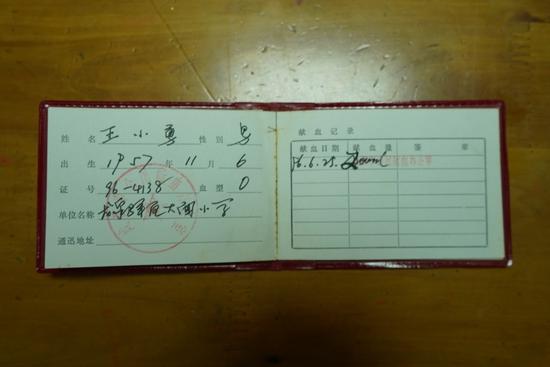 姓名 王小勇 性别 男
出生 1957 年 11 月 6
证号 96-4138 血型 O
单位名称 大闸小学
通迅地址
献血记录
献血日期 献血量 签章
96.6.25. 200ml